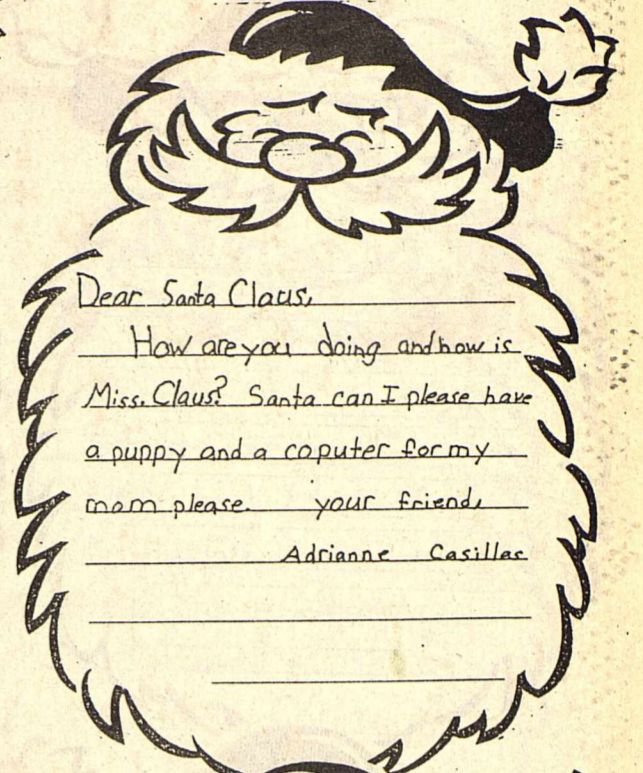 Dear Santa Claus,
How are you doing and how is
Miss. Claus? Santa can I please have
a puppy and a coputer for my
mom please. your friend,
Adrianne Casillas